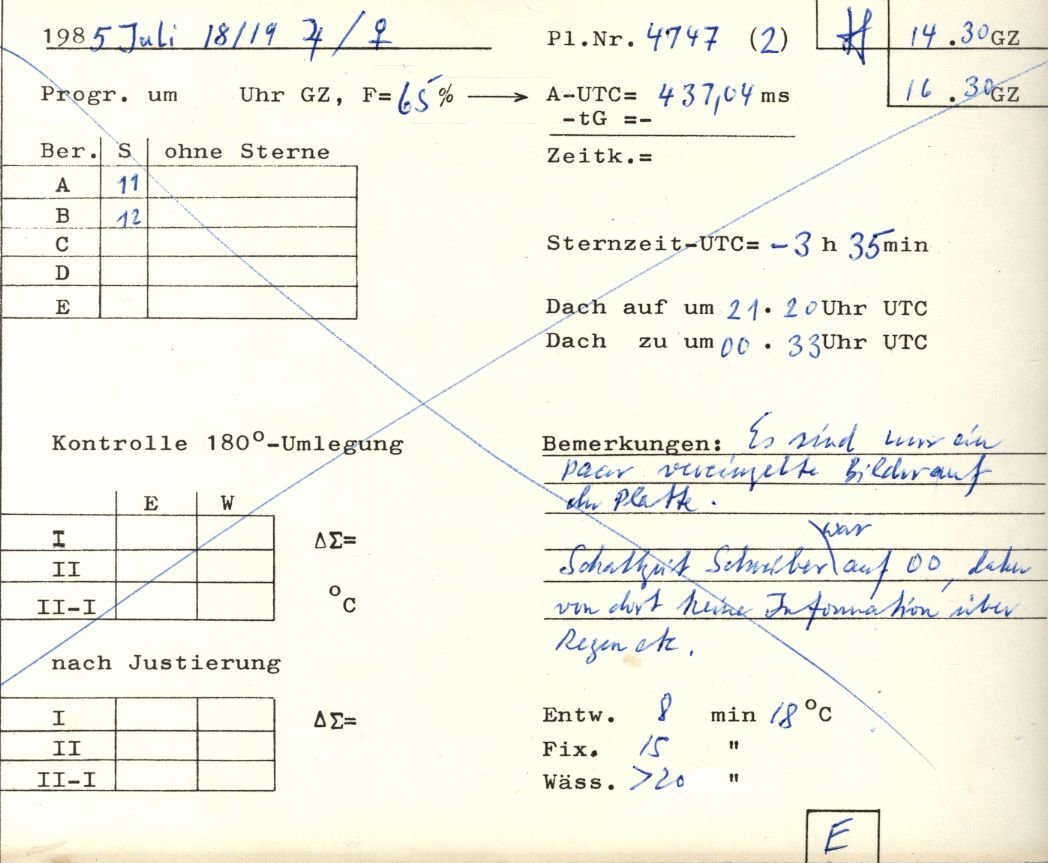 1985 Juli 18/19 ♃/♀ Pl.Nr. 4747 (2) H 14.30 GZ
16.30 GZ
Progr. um Uhr GZ, F=65% → A-UTC= 437,04 ms
-tG =-
Ber. S ohne Sterne Zeitk.=
A 11
B 12
C
D
E
Sternzeit-UTC= -3 h 35 min
Dach auf um 21.20 Uhr UTC
Dach zu um 00.33 Uhr UTC
Kontrolle 180°-Umlegung
E W
I ΔΣ=
II
II-I °C
nach Justierung
I ΔΣ=
II
II-I
Bemerkungen: Es sind nur ein
paar vereinzelte Bilder auf
der Platte.
war
Schaltzeit Schreiber auf 00, daher
von dort keine Information über
Regen etc.
Entw. 8 min 18°C
Fix. 15 "
Wäss. >20 "
E